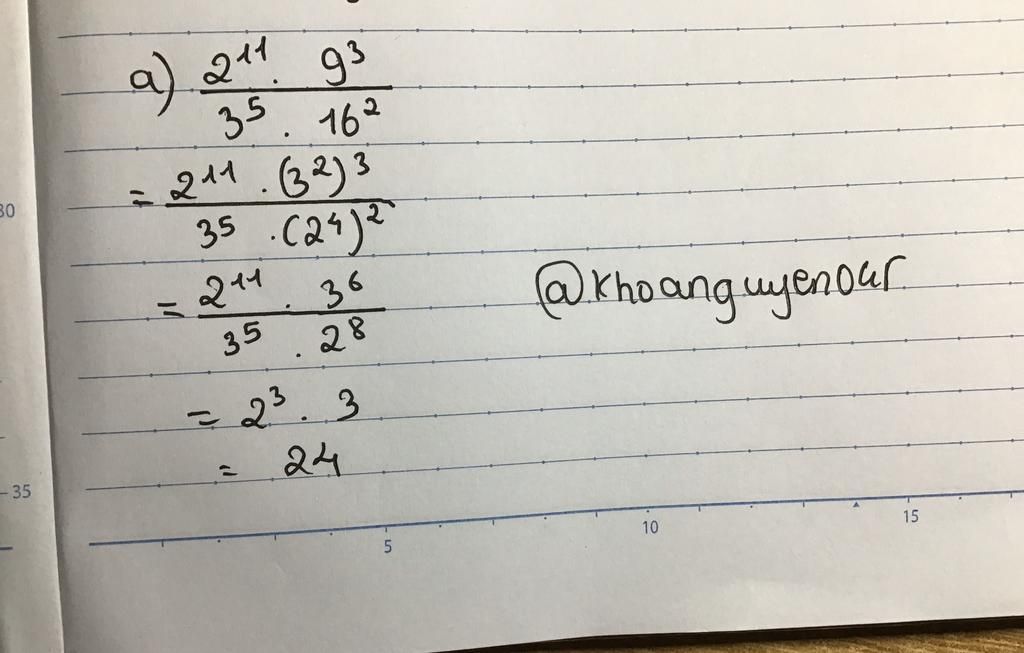 a) 2^11 . 9^3 / 3^5 . 16^2
= 2^11 . (3^2)^3 / 3^5 . (2^4)^2
= 2^11 . 3^6 / 3^5 . 2^8
@khoanguyenour
= 2^3 . 3
= 24
30
35
5 10 15